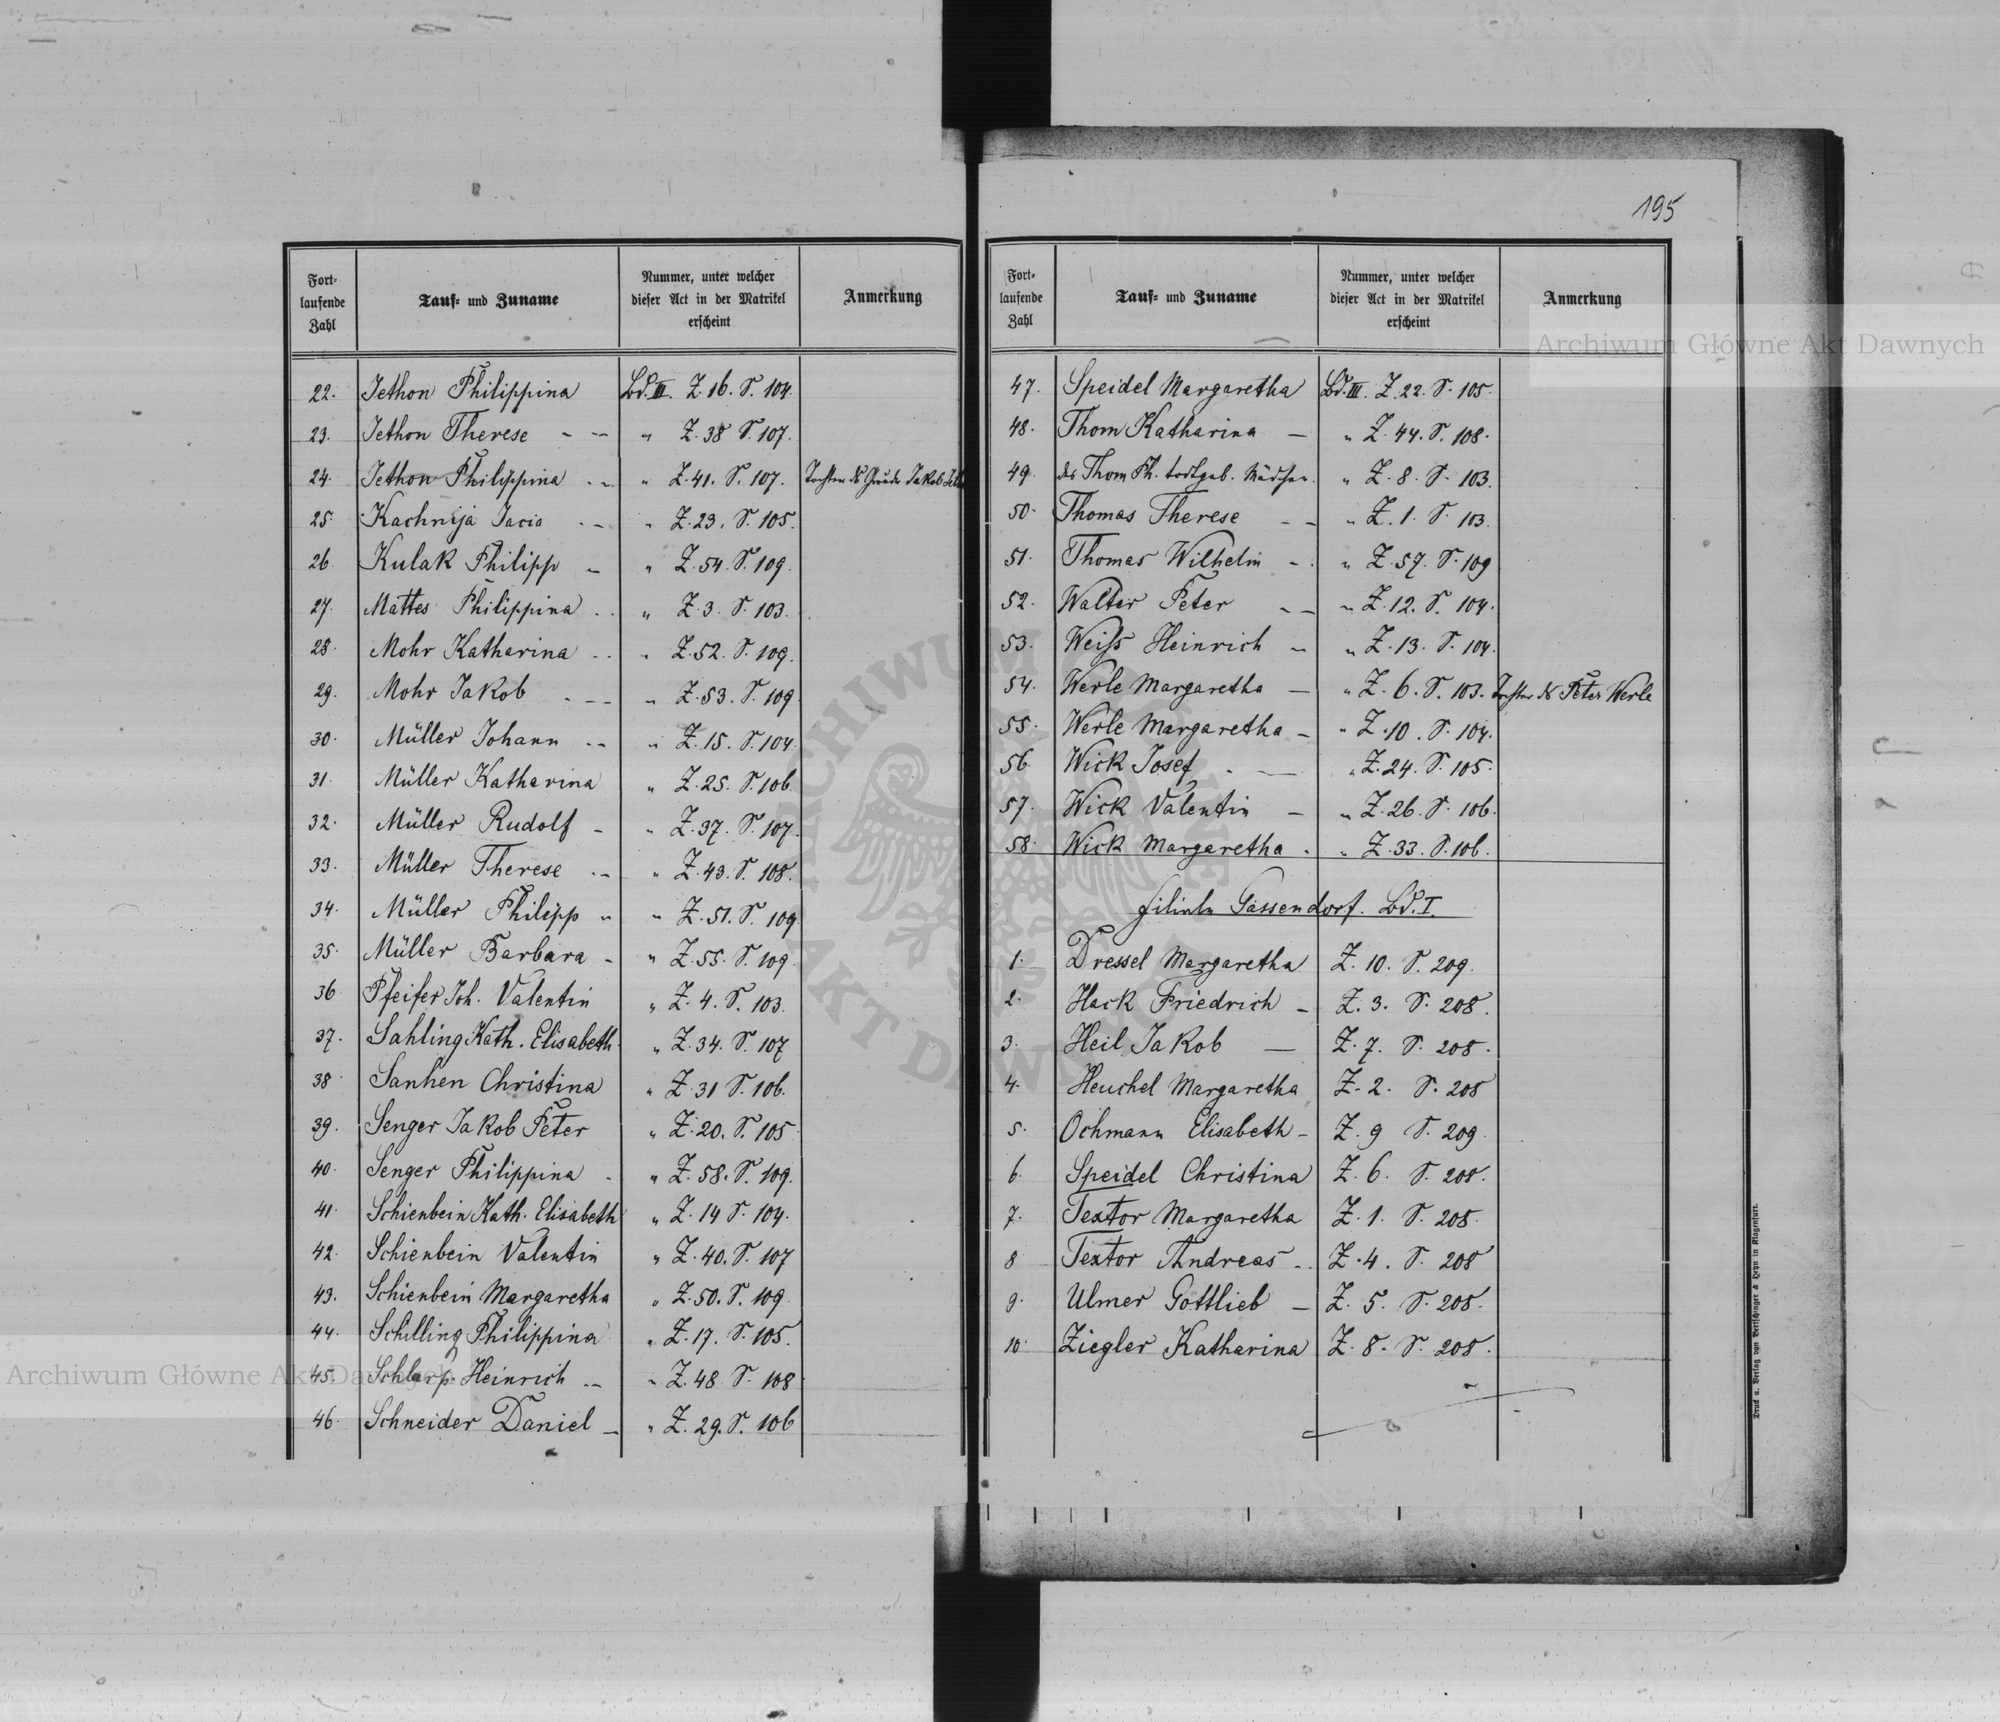 195
Fort-
laufende
Zahl
Tauf- und Zuname
Nummer, unter welcher
dieser Act in der Matrikel
erscheint
Anmerkung
22. Jethon Philippina Bd. III. Z. 16. S. 104.
23. Jethon Therese - - " Z. 38 S. 107.
24. Jethon Philippina - - " Z. 41. S. 107. Tochter des Jakob
25. Kachnija Jacio - - " Z. 23. S. 105.
26. Kulak Philipp - " Z. 54. S. 109.
27. Mattes Philippina - - " Z. 3. S. 103.
28. Mohr Katharina - - " Z. 52. S. 109.
29. Mohr Jakob - - - " Z. 53. S. 109.
30. Müller Johann - - " Z. 15. S. 104.
31. Müller Katharina " Z. 25. S. 106.
32. Müller Rudolf - " Z. 37. S. 107.
33. Müller Therese - - " Z. 43. S. 108.
34. Müller Philipp - " Z. 51. S. 109.
35. Müller Barbara - " Z. 55. S. 109.
36 Pfeifer Joh. Valentin " Z. 4. S. 103.
37. Sahling Kath. Elisabeth. " Z. 34. S. 107
38 Sanhen Christina " Z. 31 S. 106.
39. Senger Jakob Peter " Z. 20. S. 105
40. Senger Philippina - " Z. 58. S. 109.
41. Schienbein Kath. Elisabeth " Z. 14 S. 104.
42. Schienbein Valentin " Z. 40. S. 107
43. Schienbein Margaretha " Z. 50. S. 109.
44. Schilling Philippina " Z. 17. S. 105.
45. Schlarp Heinrich - - " Z. 48 S. 108
46. Schneider Daniel - " Z. 29. S. 106
Fort-
laufende
Zahl
Tauf- und Zuname
Nummer, unter welcher
dieser Act in der Matrikel
erscheint
Anmerkung
47. Speidel Margaretha Bd. III. Z. 22. S. 105.
48. Thom Katharina - " Z. 44. S. 108.
49. des Thom Ph. todtgeb. Mädchen. " Z. 8. S. 103.
50. Thomas Therese - - " Z. 1. S. 103.
51. Thomas Wilhelm - . " Z. 57. S. 109
52. Walter Peter - - " Z. 12. S. 104.
53. Weiss Heinrich - " Z. 13. S. 104.
54. Werle Margaretha - " Z. 6. S. 103. Tochter des Peter Werle
55. Werle Margaretha - " Z. 10. S. 104.
56. Wick Josef - — " Z. 24. S. 105.
57. Wick Valentin - " Z. 26. S. 106.
58. Wick Margaretha . " Z. 33. S. 106.
Filiale Gassendorf. Bd. I.
1. Dressel Margaretha Z. 10. S. 209.
2. Hack Friedrich - Z. 3. S. 208.
3. Heil Jakob — Z. 7. S. 208.
4. Heuchel Margaretha Z. 2. S. 208
5. Ochmann Elisabeth - Z. 9 S. 209.
6. Speidel Christina Z. 6. S. 208.
7. Textor Margaretha Z. 1. S. 208.
8 Textor Andreas - . Z. 4. S. 208
9. Ulmer Gottlieb - Z. 5. S. 208.
10. Ziegler Katharina Z. 8. S. 208.
Druck u. Verlag von Bertschinger & Heyn in Klagenfurt.
Archiwum Główne Akt Dawnych
Archiwum Główne Akt Dawnych
ARCHIWUM GŁÓWNE AKT DAWNYCH